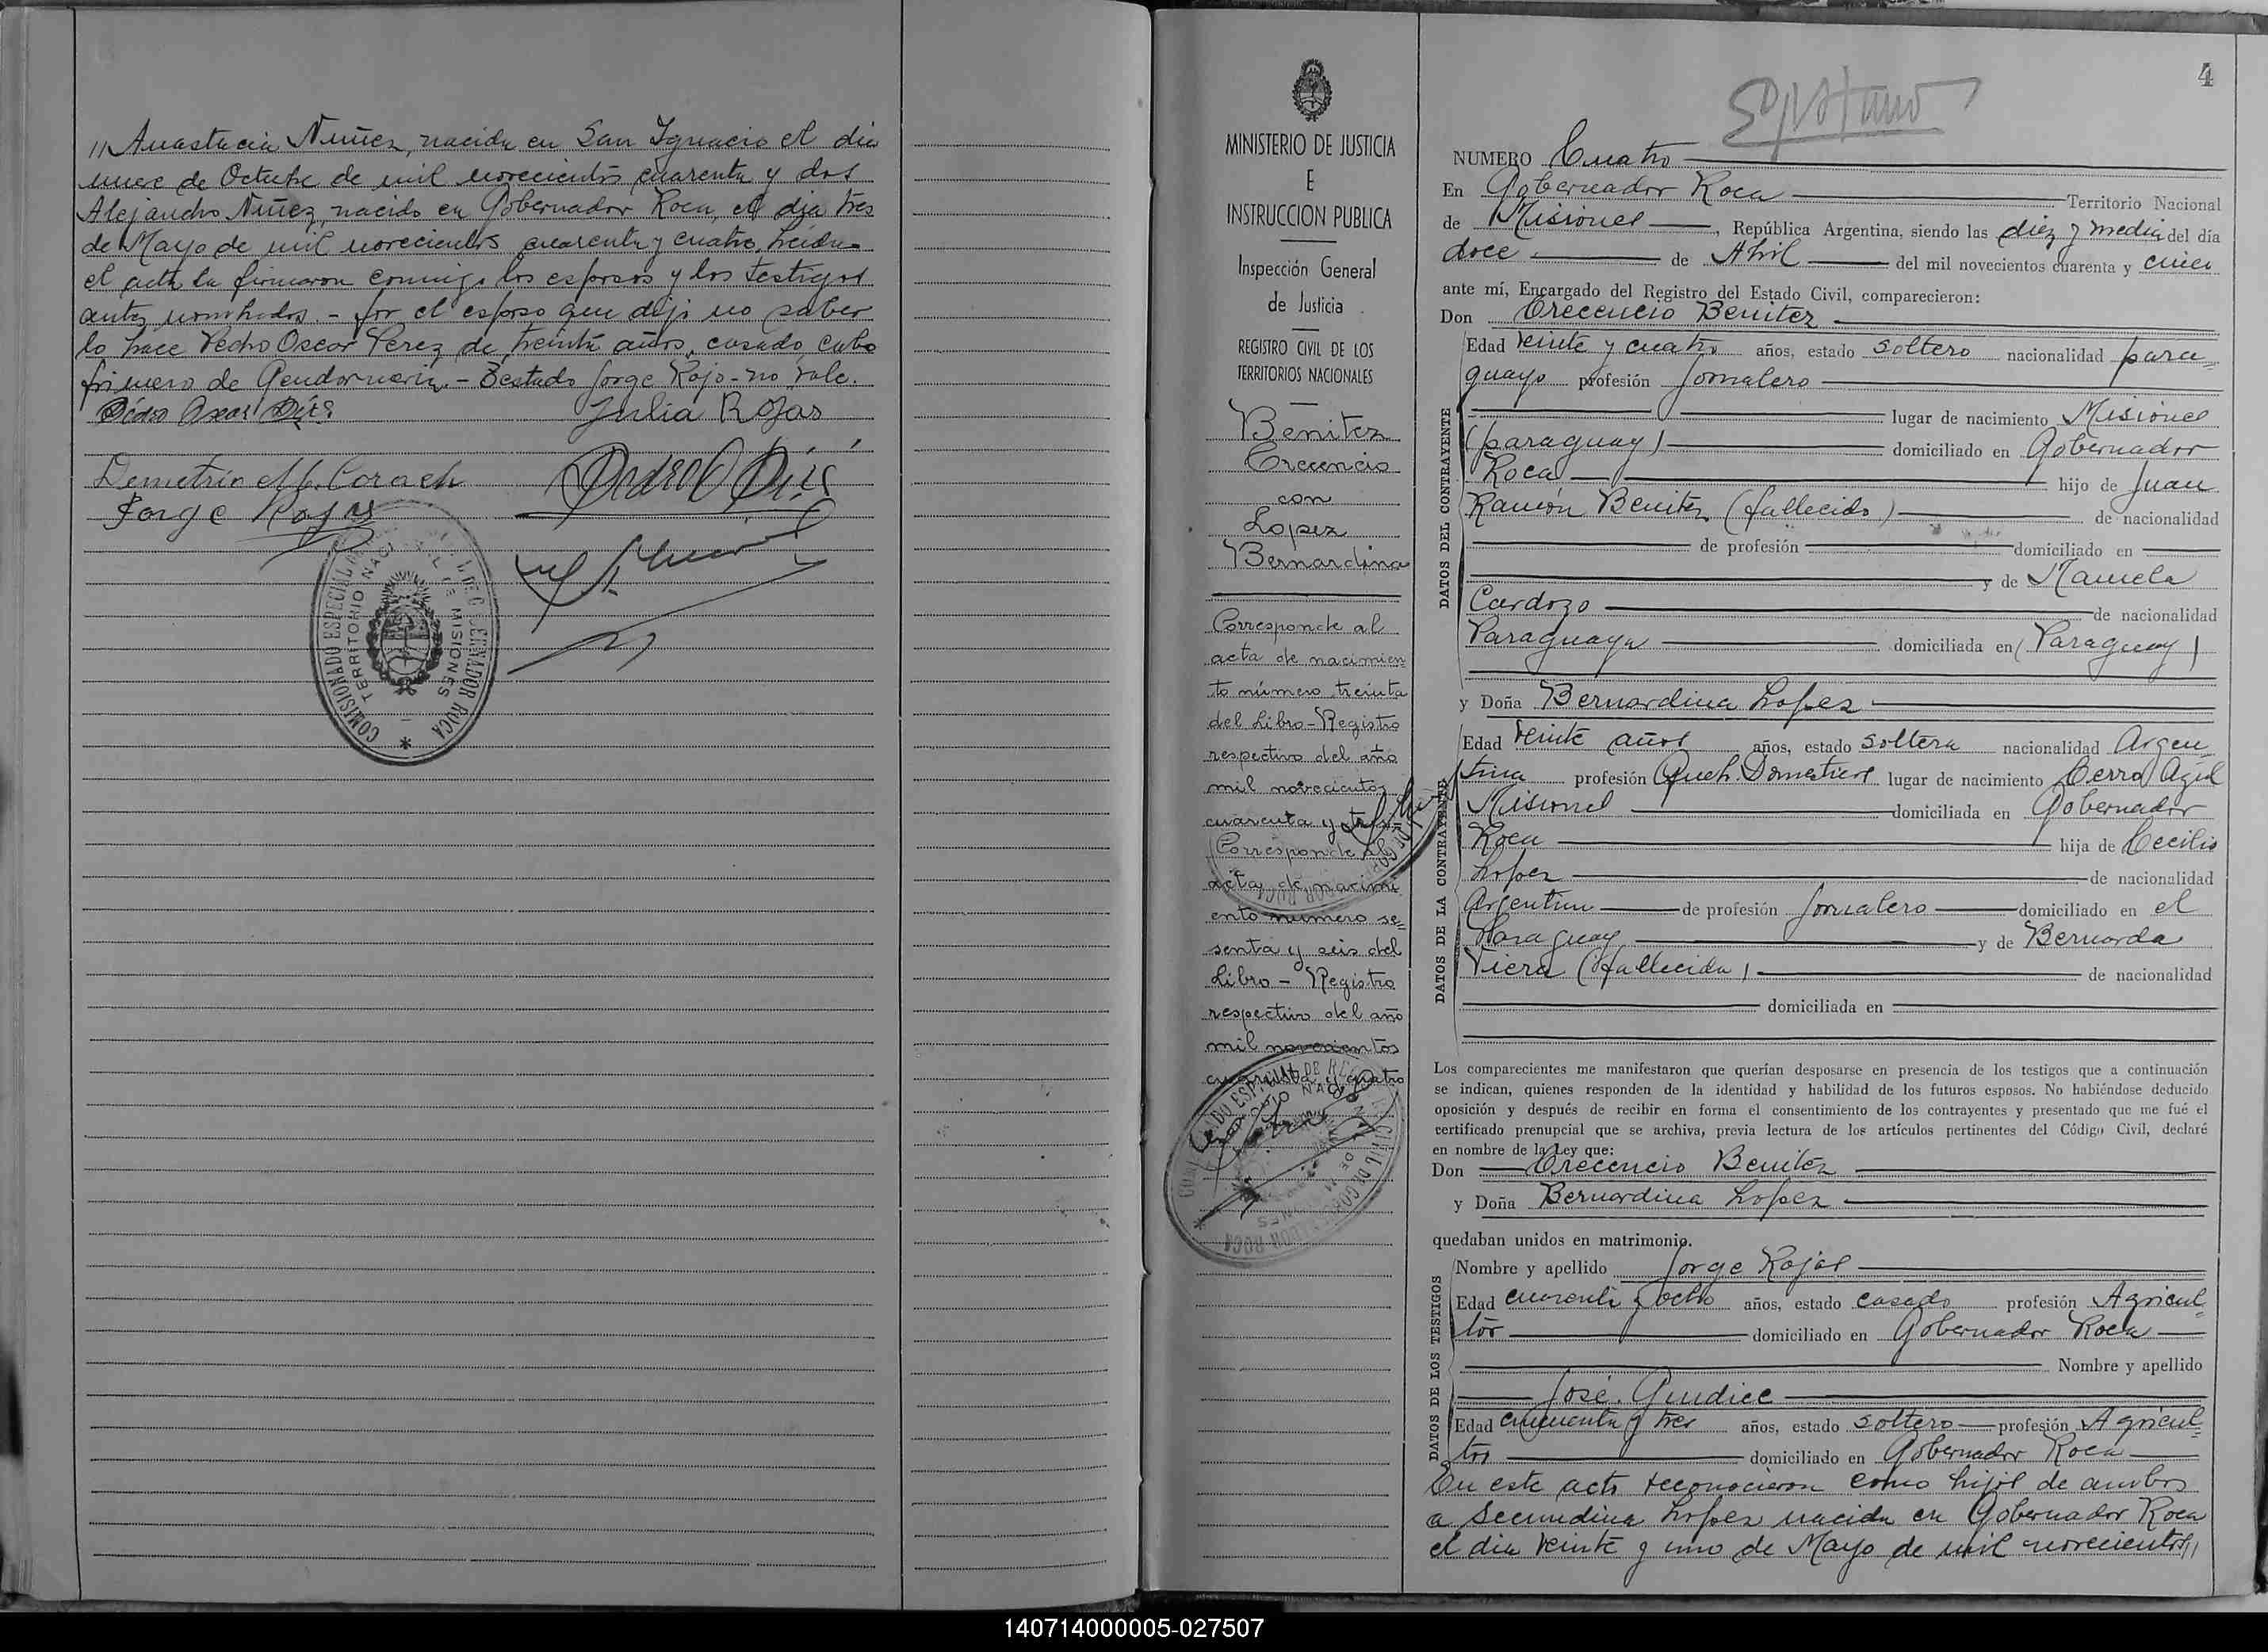 // Anastacia Nuñez, nacida en San Ignacio el dia
nueve de Octubre de mil novecientos cuarenta y dos
Alejandro Nuñez, nacido en Gobernador Roca, el dia tres
de Mayo de mil novecientos cuarenta y cuatro. Leida
el acta la firmaron conmigo los esposos y los testigos
antes nombrados. - por el esposo que dijo no saber
lo hace Pedro Oscar Perez de treinta años, casado, Cabo
primero de Gendarmeria. - Testado Jorge Rojo - no vale.
Julia Rojas
Jorge Rojas
COMISIONADO ESPECIAL
GOBERNADOR ROCA
TERRITORIO NACIONAL DE MISIONES
MINISTERIO DE JUSTICIA
E
INSTRUCCION PUBLICA
Inspección General
de Justicia
REGISTRO CIVIL DE LOS
TERRITORIOS NACIONALES
Benitez
Crecencio
con
Lopez
Bernardina
Corresponde al
acta de nacimien
to número treinta
del Libro-Registro
respectivo del año
mil novecientos
cuarenta y tres
Corresponde al
acta de nacimi
ento número se=
senta y seis del
Libro - Registro
respectivo del año
mil novecientos
cuarenta y cuatro
4
NUMERO Cuatro
En Gobernador Roca Territorio Nacional
de Misiones, República Argentina, siendo las diez y media del día
doce de Abril del mil novecientos cuarenta y cinco
ante mí, Encargado del Registro del Estado Civil, comparecieron:
Don Crecencio Benitez
DATOS DEL CONTRAYENTE
Edad veinte y cuatro años, estado soltero nacionalidad para=
guayo profesión Jornalero
lugar de nacimiento Misiones
(paraguay) domiciliado en Gobernador
Roca hijo de Juan
Ramón Benitez (fallecido) de nacionalidad
de profesión domiciliado en
y de Manuela
Cardozo de nacionalidad
Paraguaya domiciliada en (Paraguay)
y Doña Bernardina Lopez
DATOS DE LA CONTRAYENTE
Edad veinte años años, estado soltera nacionalidad Argen=
tina profesión Queh. Domesticos lugar de nacimiento Cerro Azul
Misiones domiciliada en Gobernador
Roca hija de Cecilio
Lopez de nacionalidad
Argentino de profesión Jornalero domiciliado en el
Paraguay y de Bernarda
Viera (fallecida) de nacionalidad
domiciliada en
Los comparecientes me manifestaron que querían desposarse en presencia de los testigos que a continuación
se indican, quienes responden de la identidad y habilidad de los futuros esposos. No habiéndose deducido
oposición y después de recibir en forma el consentimiento de los contrayentes y presentado que me fué el
certificado prenupcial que se archiva, previa lectura de los artículos pertinentes del Código Civil, declaré
en nombre de la Ley que:
Don Crecencio Benitez
y Doña Bernardina Lopez
quedaban unidos en matrimonio.
DATOS DE LOS TESTIGOS
Nombre y apellido Jorge Rojas
Edad cuarenta y ocho años, estado casado profesión Agricul=
tor domiciliado en Gobernador Roca
Nombre y apellido
José Giudice
Edad cincuenta y tres años, estado soltero profesión Agricul=
tor domiciliado en Gobernador Roca
En este acto reconocieron como hijos de ambos
a Secundina Lopez nacida en Gobernador Roca
el dia veinte y uno de Mayo de mil novecientos//
140714000005-027507